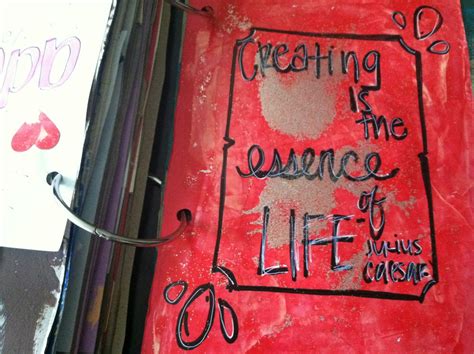 Creating
is
the
essence
of
LIFE -
Julius
Caesar